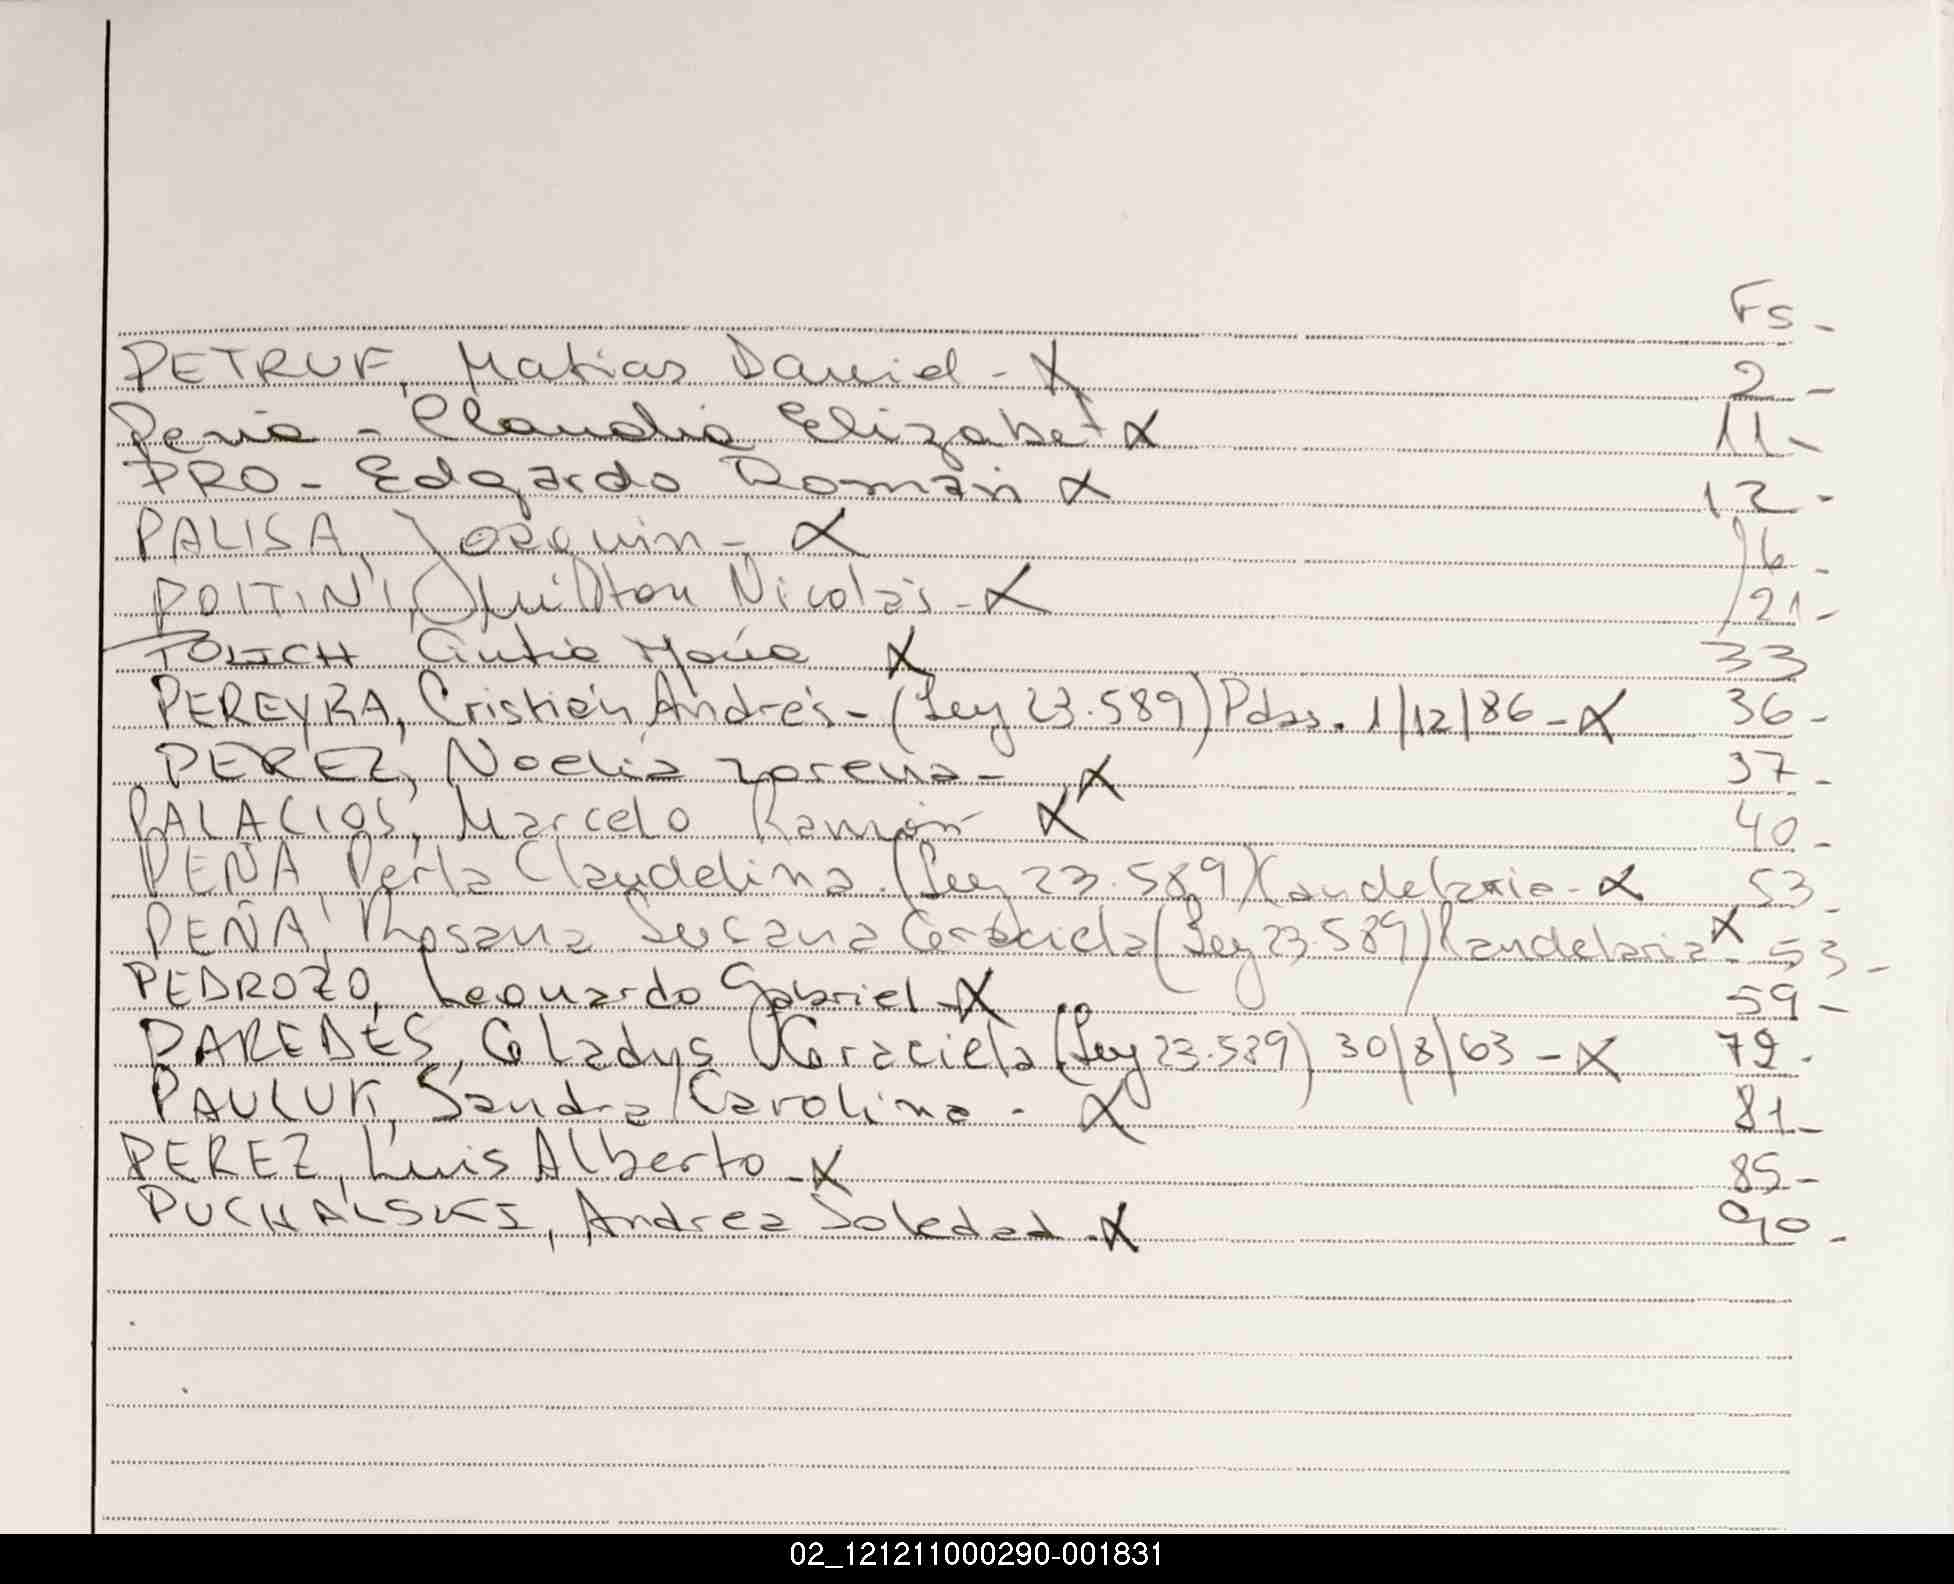 Fs -
PETRUF, Matias Daniel - X 2 -
Peña - Claudia Elizabet X 11 -
PRO - Edgardo Román X 12 -
PALISA, Joaquin - X 16 -
POITINI, Milton Nicolás - X 21 -
POLICH María X 33
PEREYRA, Cristián Andrés - (Ley 23.589) Pdas. 1/12/86 - X 36 -
PEREZ, Noelia Lorena - X 37 -
PALACIOS, Marcelo Ramón X 40 -
PEÑA, Perla Claudelina. (Ley 23.589) Candelaria - X 53 -
PEÑA, Rosana Susana Graciela (Ley 23.589) Candelaria - X 53 -
PEDROZO, Leonardo Gabriel - X 59 -
PAREDES, Gladys Graciela (Ley 23.529) 30/8/63 - X 72 -
PAULUK, Sandra Carolina - X 81 -
PEREZ, Luis Alberto - X 85 -
PUCHALSKI, Andrea Soledad - X 90 -
02_121211000290-001831